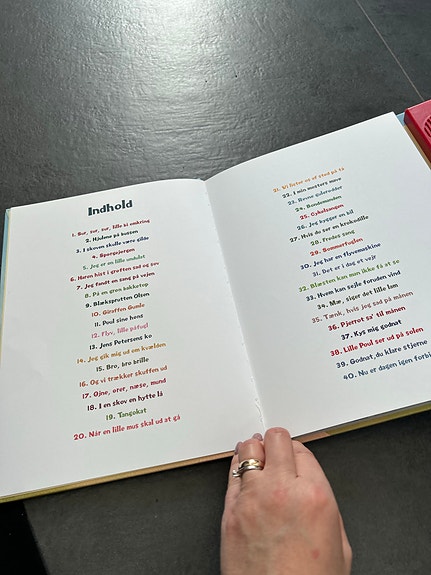 Indhold
1. Sur, sur, sur, lille bi omkring
2. Hjulene på bussen
3. I skoven skulle være gilde
4. Spørgejørgen
5. Jeg er en lille undulat
6. Haren hist i grøften sad og sov
7. Jeg fandt en sang på vejen
8. På en grøn bakketop
9. Blæksprutten Olsen
10. Giraffen Gumle
11. Poul sine høns
12. Flyv, lille påfugl
13. Jens Petersens ko
14. Jeg gik mig ud om kvælden
15. Bro, bro brille
16. Og vi trækker skuffen ud
17. Øjne, ører, næse, mund
18. I en skov en hytte lå
19. Tangokat
20. Når en lille mus skal ud at gå
21. Vi lister os af sted på tå
22. I min mosters have
23. Revne gulerødder
24. Bondemanden
25. Cykelsangen
26. Jeg bygger en bil
27. Hvis du ser en krokodille
28. Fredes sang
29. Sommerfuglen
30. Jeg har en flyvemaskine
31. Det er i dag et vejr
32. Blæsten kan man ikke få at se
33. Hvem kan sejle foruden vind
34. Mæ, siger det lille lam
35. Tænk, hvis jeg sad på månen
36. Pjerrot sa' til månen
37. Kys mig godnat
38. Lille Poul ser ud på solen
39. Godnat, du klare stjerne
40. Nu er dagen igen forbi